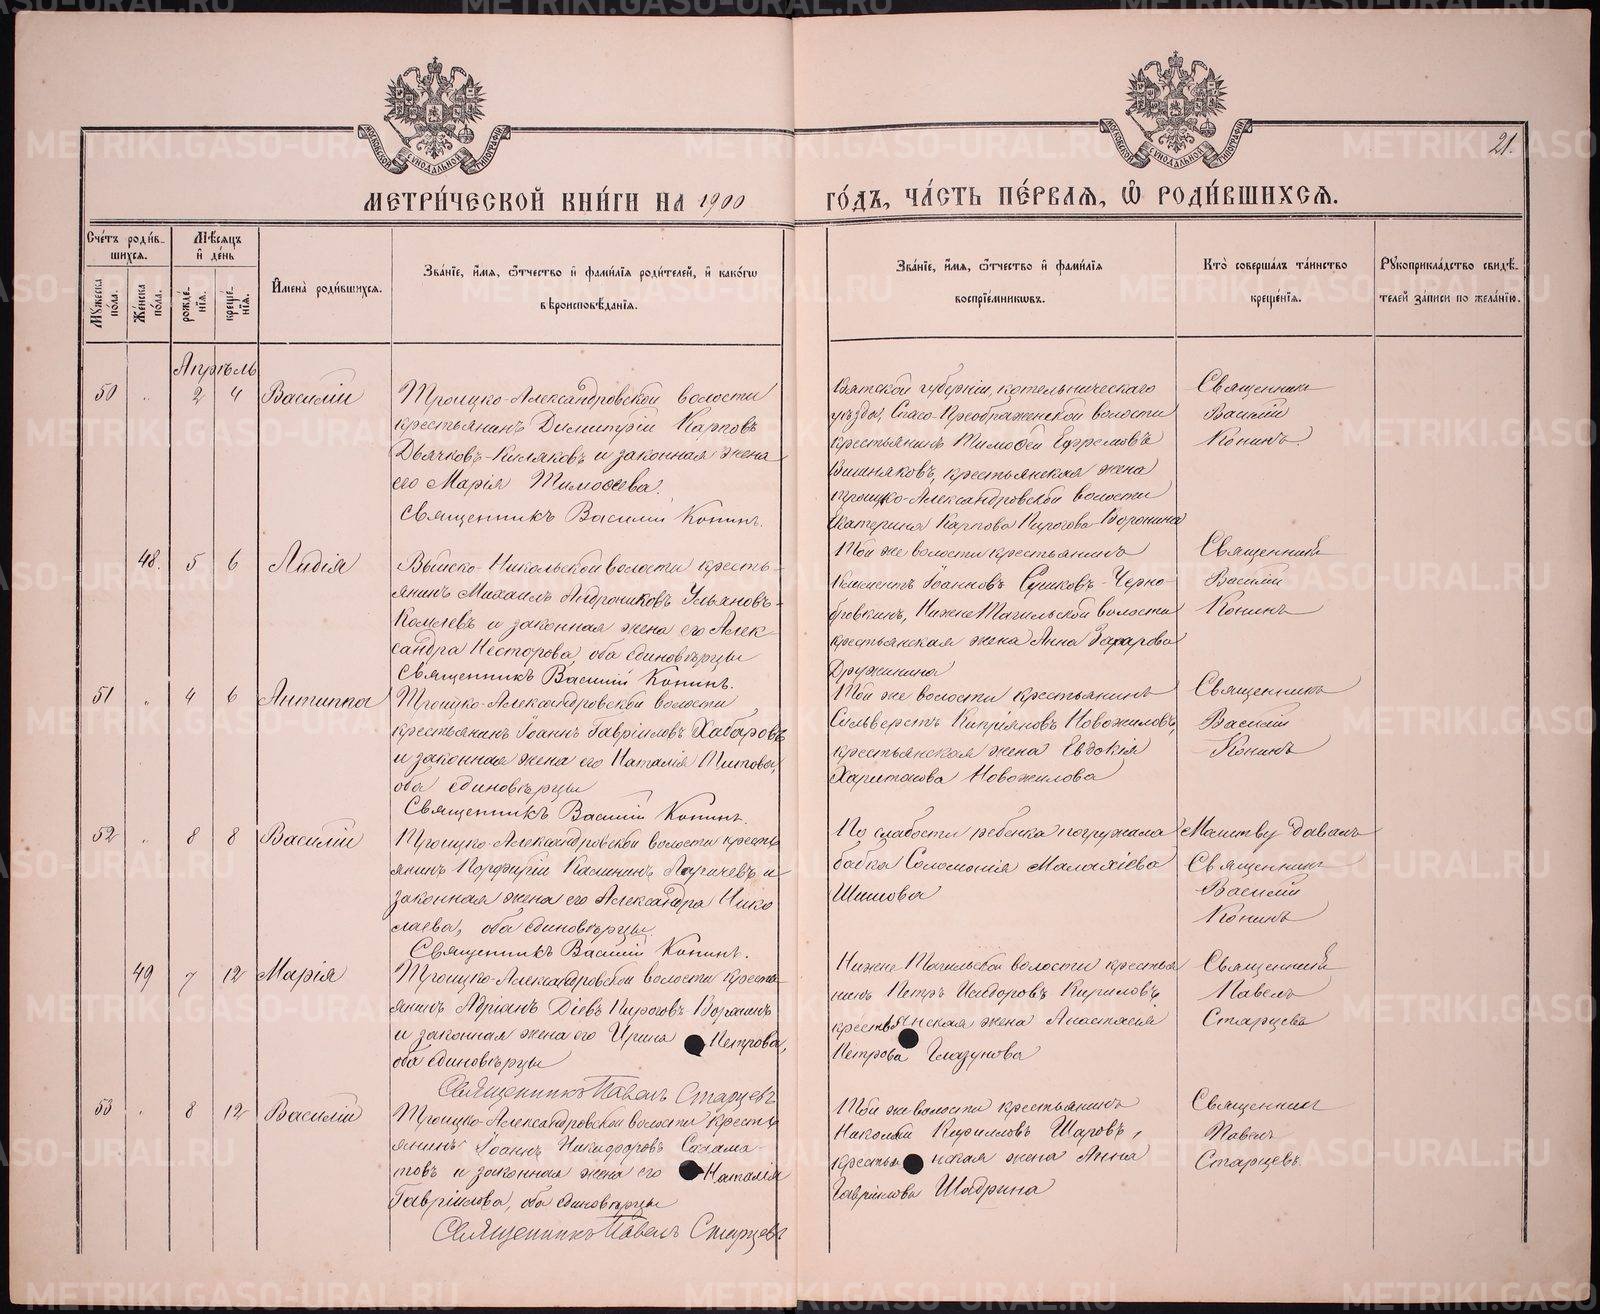 МОСКОВСКОЙ СѴНОДАЛЬНОЙ ТИПОГРАФІИ
МОСКОВСКОЙ СѴНОДАЛЬНОЙ ТИПОГРАФІИ
21.
МЕТРИ́ЧЕСКОЙ КНИ́ГИ НА 1900
ГО́ДЪ, ЧА́СТЬ ПЕ́РВАѦ, Ѿ РОДИ́ВШИХСѦ.
Сче́тъ роди́в-
шихсѧ.
Мꙋжеска по́ла.
Же́нска по́ла.
Мѣ́сѧцъ и҆ де́нь
рожде́нїѧ.
креще́нїѧ.
И҆мена̀ роди́вшихсѧ.
Зва́нїе, и҆́мѧ, ѻ҆́тчество и҆ фами́лїѧ роди́телей, и҆ како́гѡ
вѣроисповѣ́данїѧ.
Зва́нїе, и҆́мѧ, ѻ҆́тчество и҆ фами́лїѧ
воспрїе́мникѡвъ.
Кто̀ соверша́лъ та́инство
креще́нїѧ.
Рꙋкоприкла́дство свидѣ́-
телей за́писи по жела́нїю.
Апрѣль
50 " 2 4 Василій
Троицко-Александровской волости
крестьянинъ Димитрій Карповъ
Дьячковъ-Киляковъ и законная жена
его Марія Тимоѳеева.
Священникъ Василій Конинъ.
Вятской губерніи, котельническаго
уѣзда, Спасо-Преображенской волости
крестьянинъ Тимофей Ефремовъ
Вишняковъ, крестьянская жена
Троицко-Александровской волости
Екатерина Карпова Пирогова-Воронина
Священникъ
Василій
Конинъ.
48. 5 6 Лидія
Выйско-Никольской волости кресть-
янинъ Михаилъ Андрониковъ Ульяновъ-
Комлевъ и законная жена его Алек
сандра Несторова, оба единовѣрцы
Священникъ Василій Конинъ.
Той же волости крестьянинъ
Климентъ Іоанновъ Сушковъ-Черно-
бровкинъ, Нижне Тагильской волости
крестьянская жена Анна Захарова
Дружинина
Священникъ
Василій
Конинъ
51 " 4 6 Антиппа
Троицко-Александровской волости
крестьянинъ Іоаннъ Гавріиловъ Хабаровъ
и законная жена его Наталія Титова,
оба единовѣрцы
Священникъ Василій Конинъ.
Той же волости крестьянинъ
Сильверстъ Кипріяновъ Новожиловъ,
крестьянская жена Евдокія
Харитонова Новожилова
Священникъ
Василій
Конинъ
52 " 8 8 Василій
Троицко-Александровской волости кресть
янинъ Порфирій Калининъ и
законная жена его Александра Нико
лаева, оба единовѣрцы.
Священникъ Василій Конинъ.
По слабости ребенка погружала
бабка Соломонія Малахіева
Шилова
Молитву давалъ
Священникъ
Василій
Конинъ
49 7 12 Марія
Троицко-Александровской волости кресть
янинъ Адріанъ Діевъ Пироговъ Воронинъ
и законная жена его Ирина Петрова,
оба единовѣрцы
Священникъ Павелъ Старцевъ
Нижне Тагильской волости крестья
нинъ Петръ Исидоровъ Кириловъ,
крестьянская жена Анастасія
Петрова Глазунова
Священникъ
Павелъ
Старцевъ
53 " 8 12 Василій
Троицко-Александровской волости кресть
янинъ Іоаннъ Никифоровъ Салама-
товъ и законная жена его Наталія
Гавріилова, оба единовѣрцы
Священникъ Павелъ Старцевъ
Той же волости крестьянинъ
Николай Кирилловъ Шаровъ,
крестьянская жена Анна
Гавріилова Шадрина
Священникъ
Павелъ
Старцевъ.
METRIKI.GASO-URAL.RU